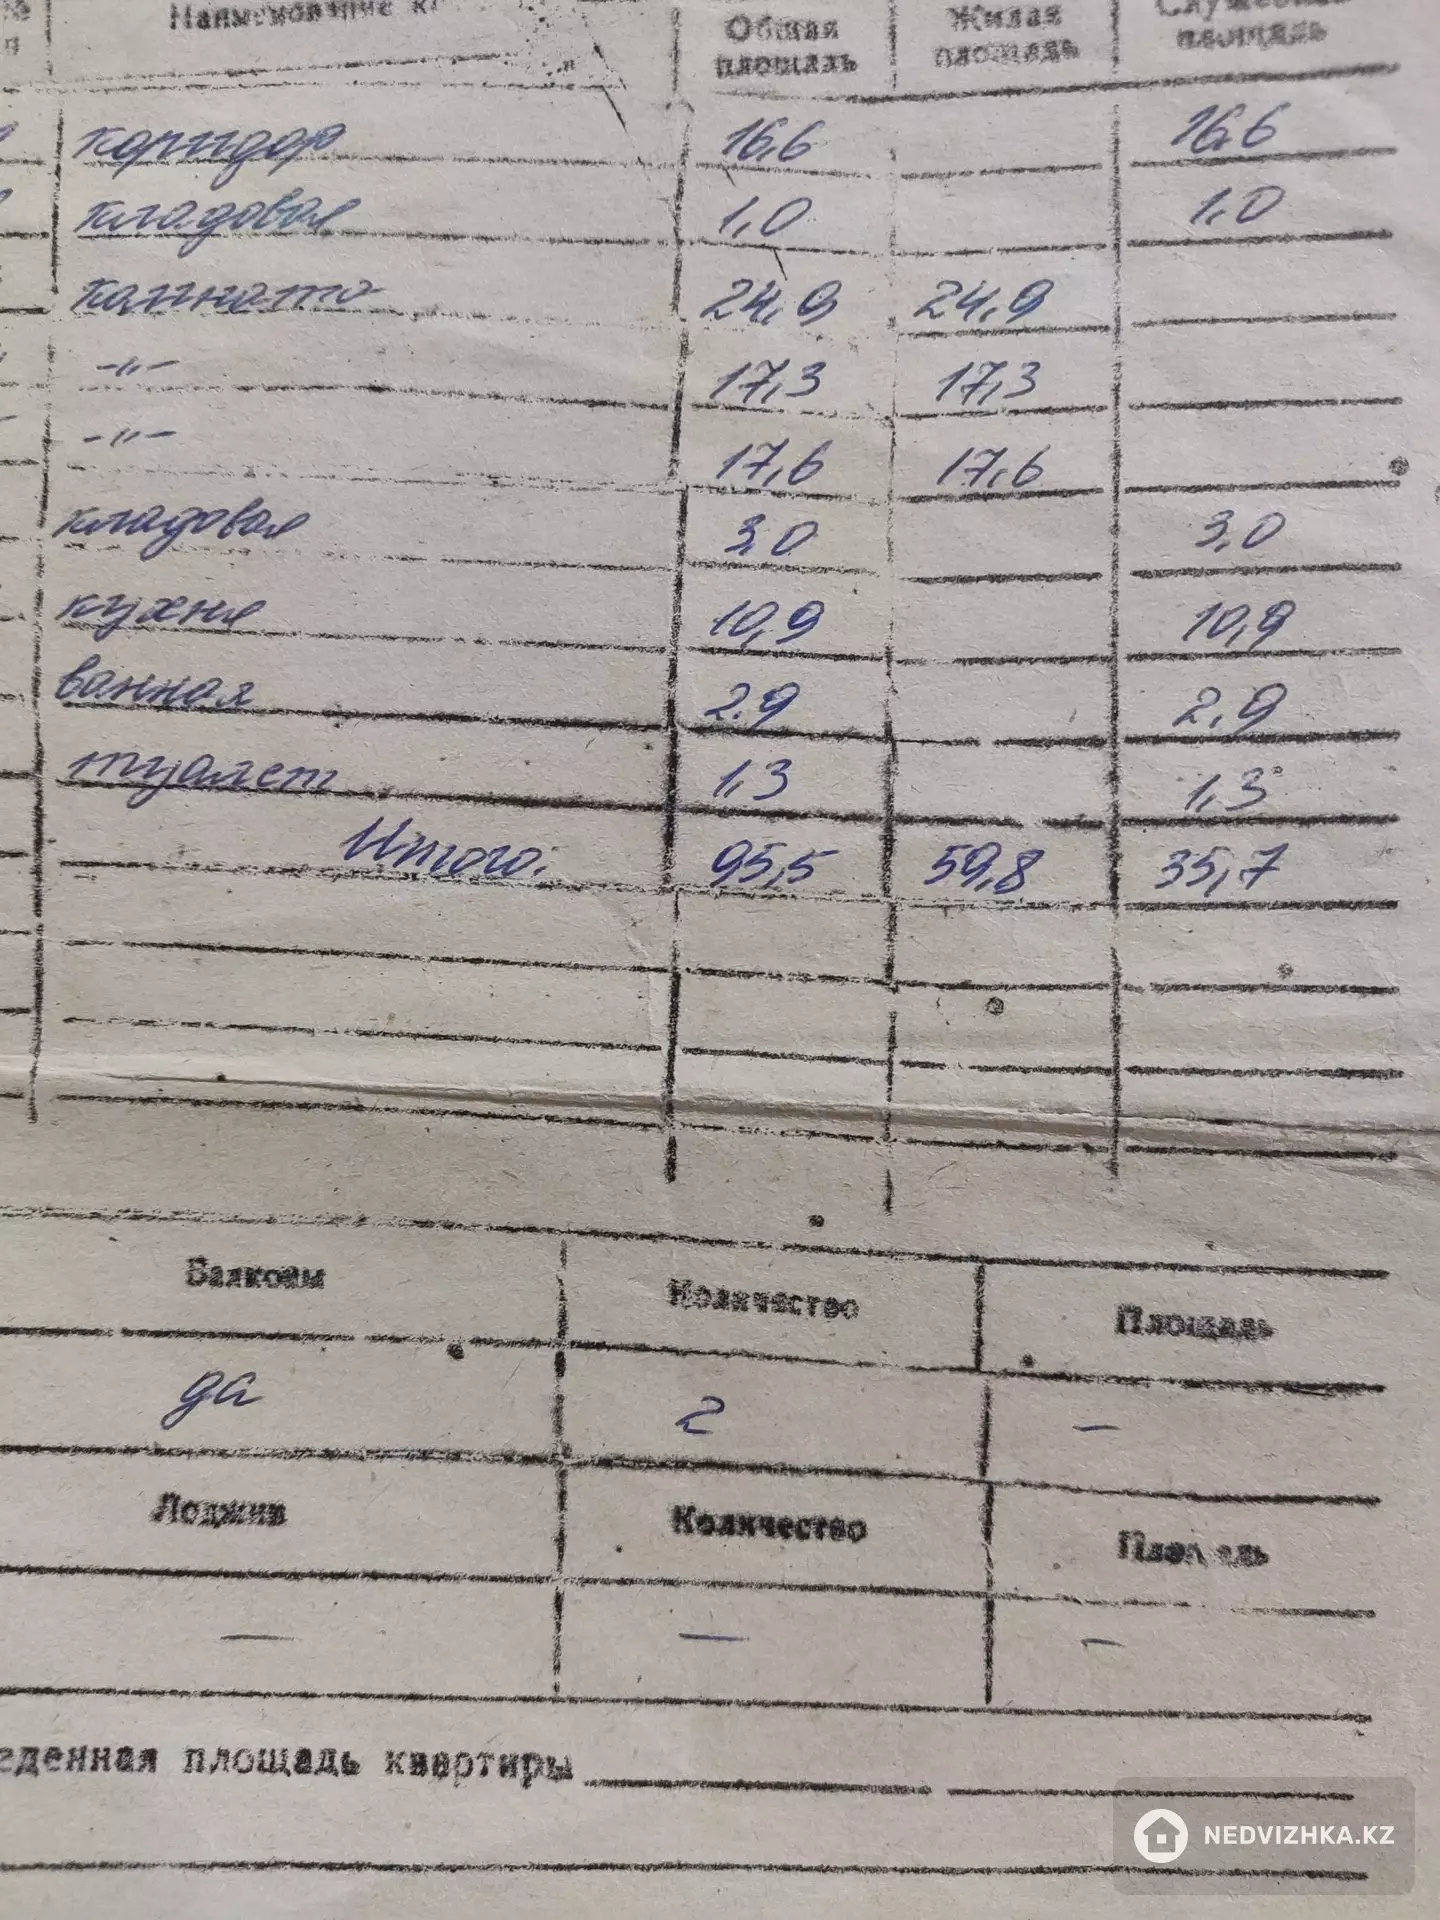 Наименование к
Общая площадь Жилая площадь Служебная площадь
коридор 16,6 16,6
кладовая 1,0 1,0
комната 24,9 24,9
-"- 17,3 17,3
-"- 17,6 17,6
кладовая 3,0 3,0
кухня 10,9 10,9
ванная 2.9 2,9
туалет 1,3 1,3
Итого: 95,5 59,8 35,7
Балконы Количество Площадь
да 2 –
Лоджии Количество
– – –
еденная площадь квартиры
NEDVIZHKA.KZ